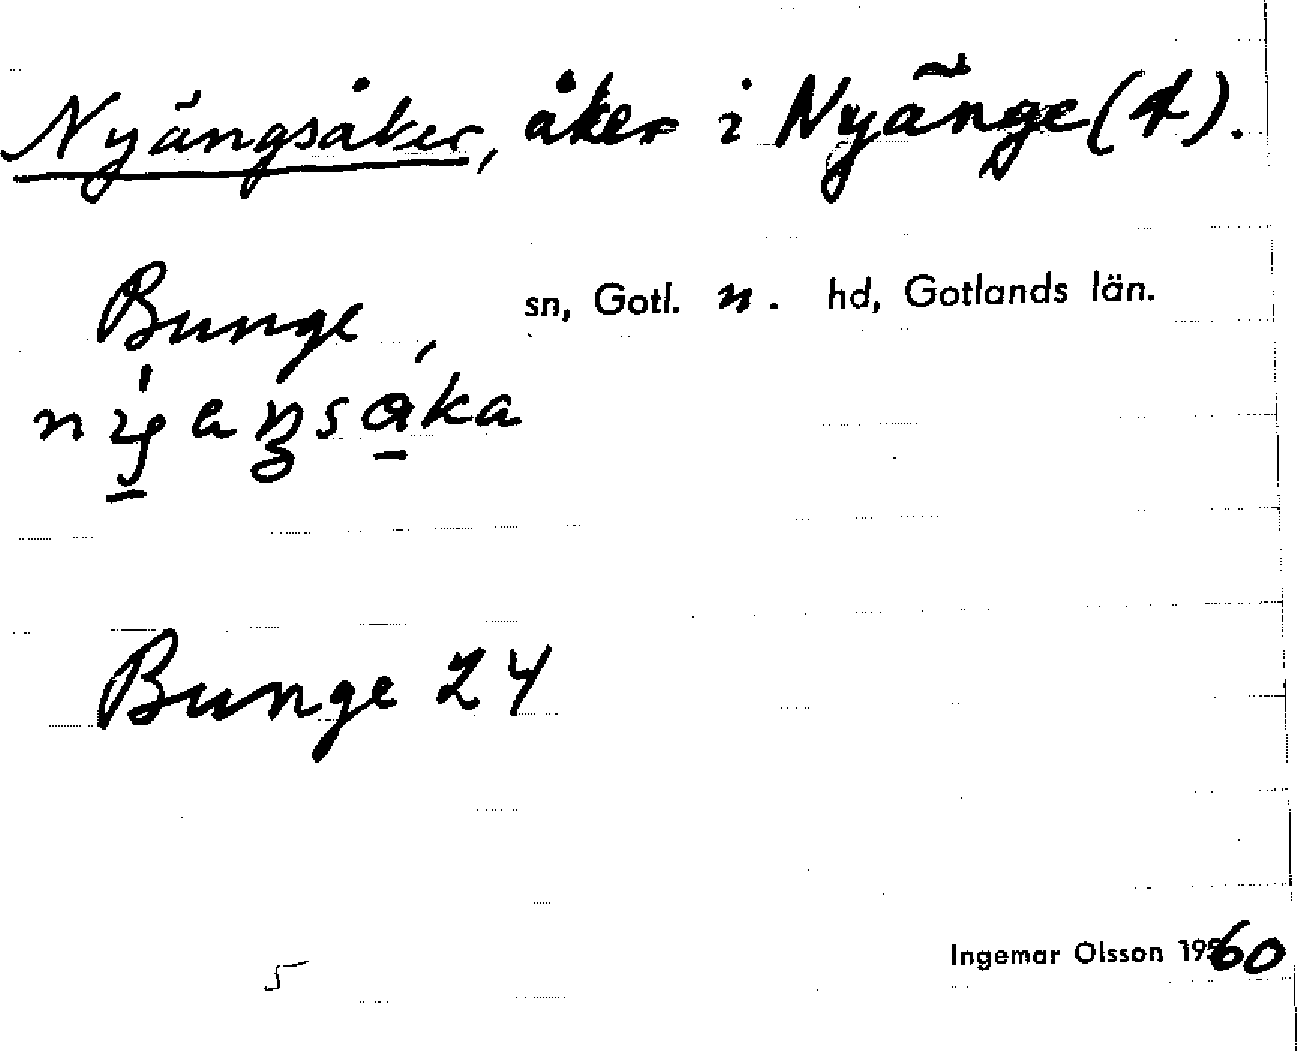 Nyängsåker, åker i Nyänge (4).
Bunge, sn, Gotl. n. hd, Gotlands län.
Bunge 24
Ingemar Olsson 1960
5